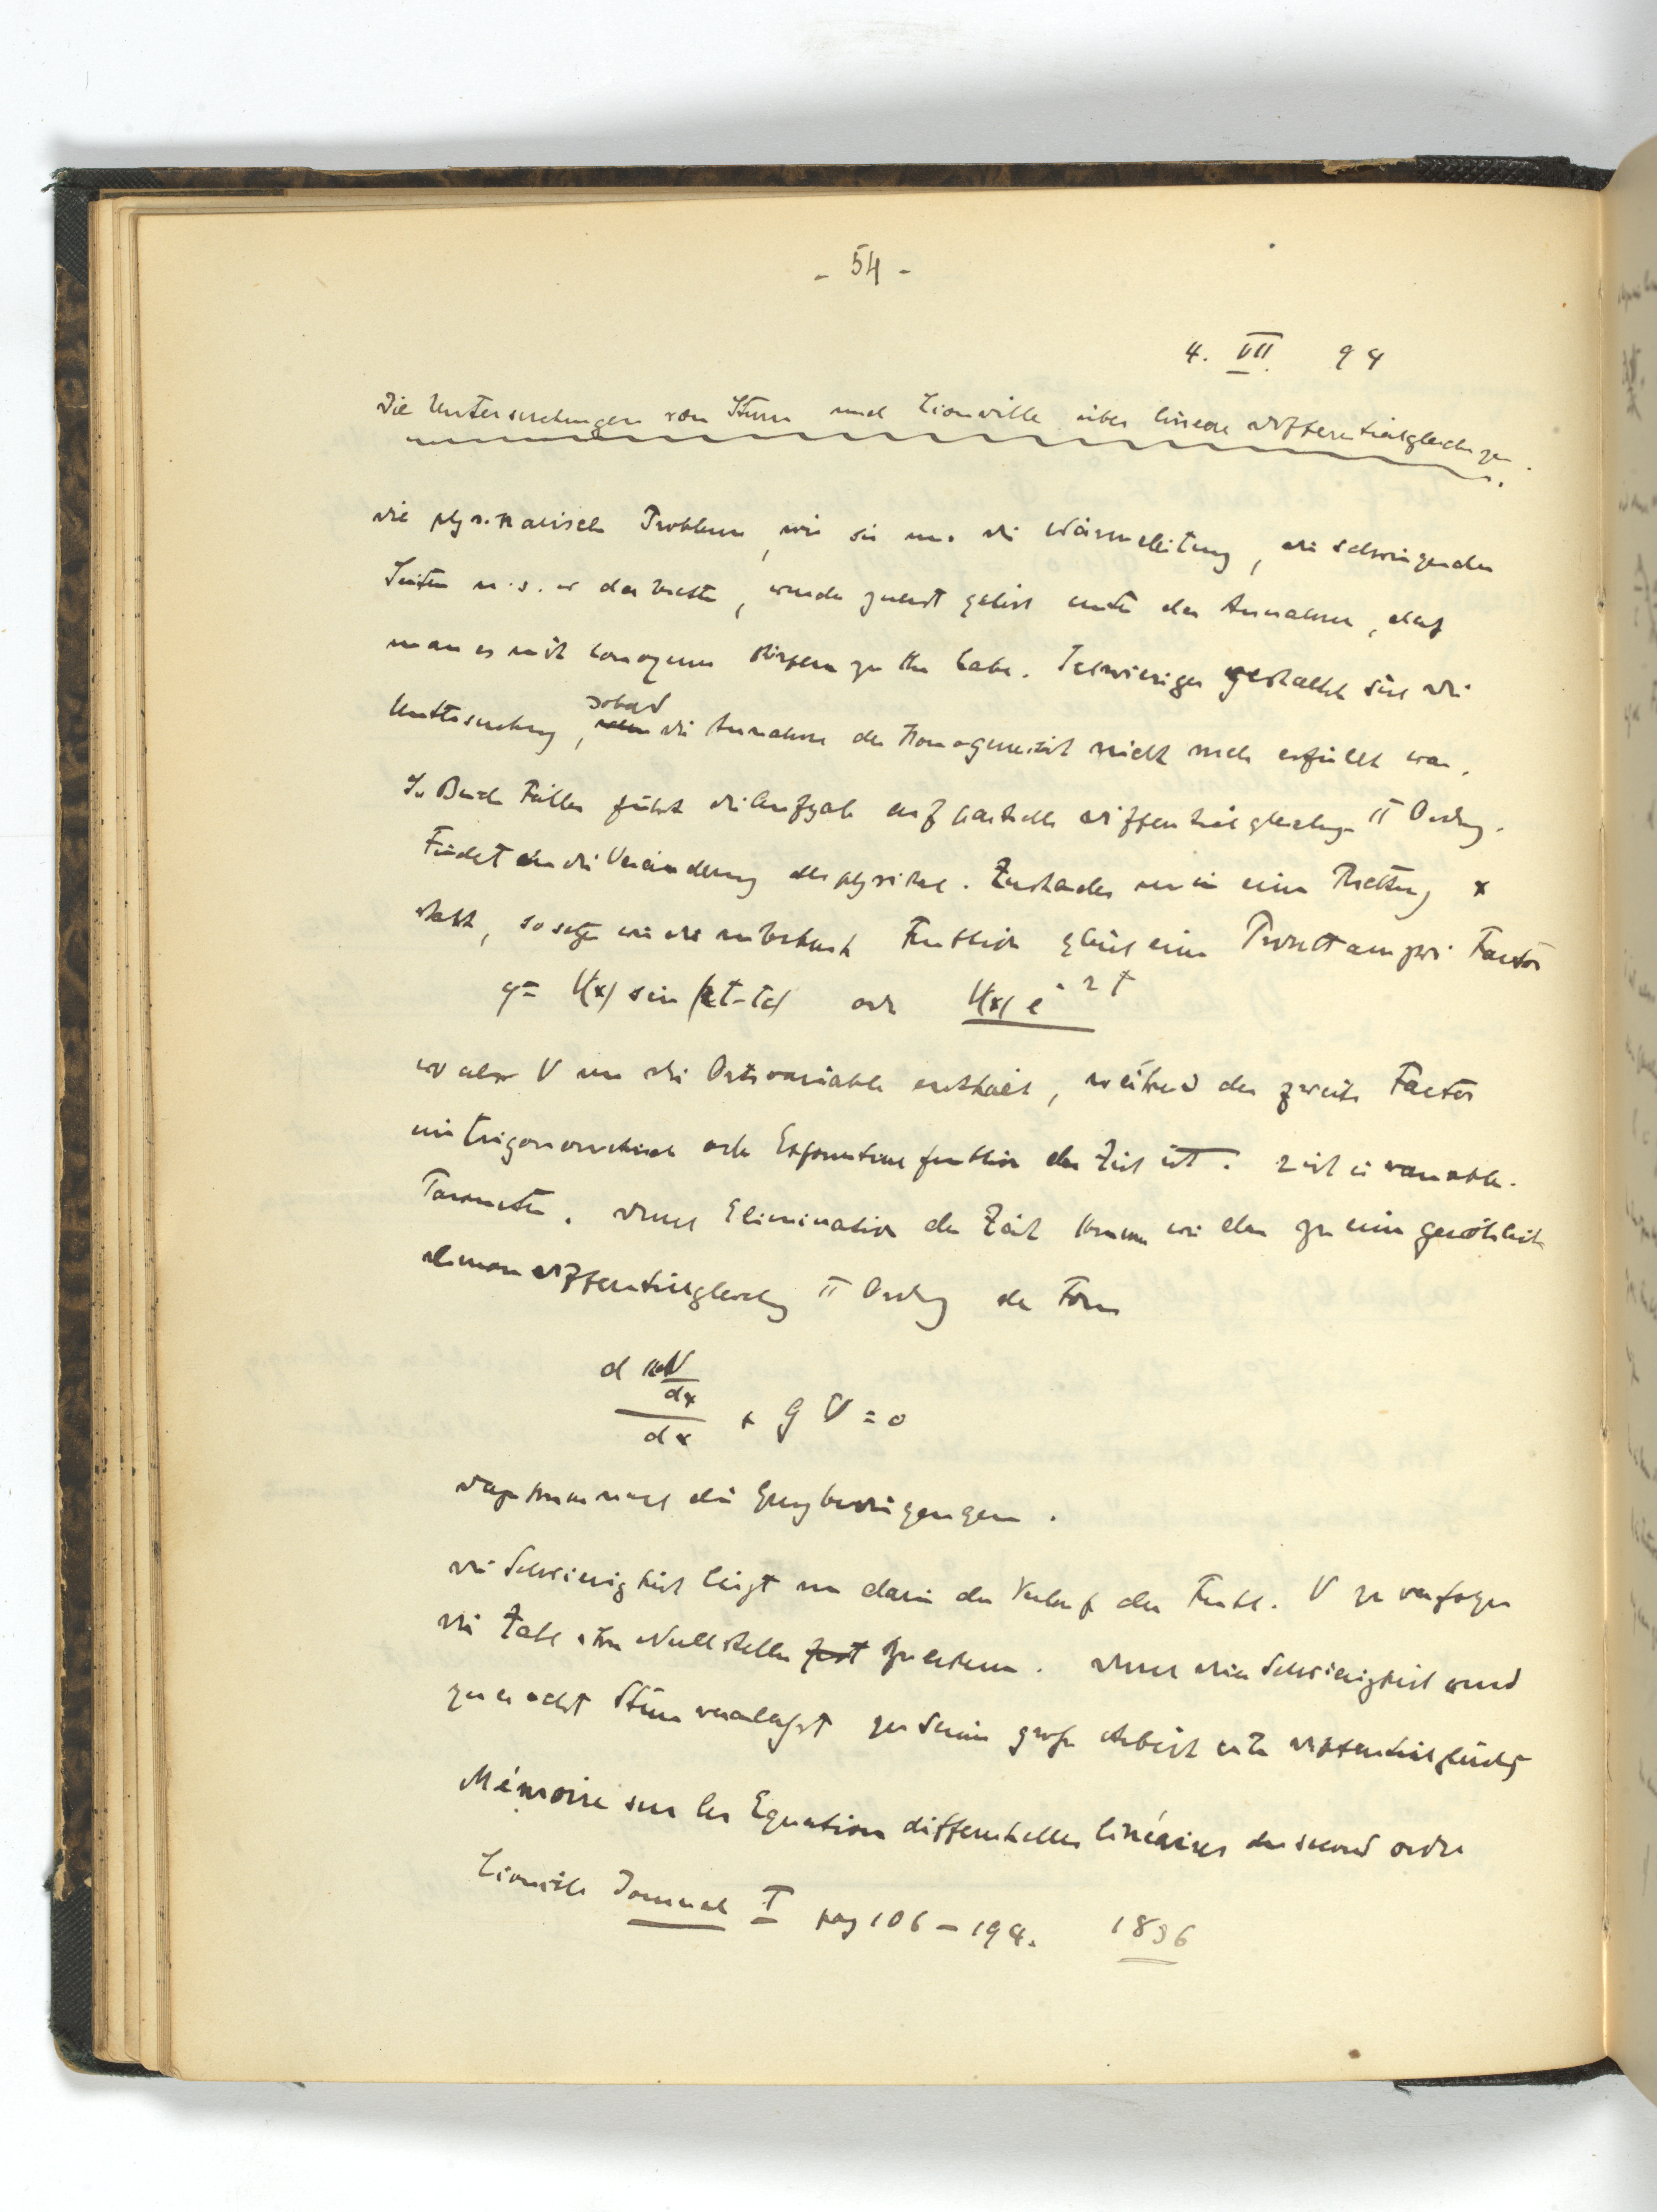 - 54 -
4. VII. 94
Die Untersuchungen von Sturm und Liouville über lineare Differentialgleichungen.
Die physikalischen Probleme, wie sie uns die Wärmeleitung, die schwingenden
Saiten u.s.w. darbieten, wurden zuerst gelöst unter der Annahme, daß
man es mit homogenen Körpern zu thun habe. Schwieriger gestaltet sich die
Untersuchung, sobald die Annahme der Homogeneität nicht mehr erfüllt war.
In Beiden Fällen führt die Aufgabe auf partielle Differentialgleichungen II Ordng.
Findet die Veränderung des physikal. Zustandes nur in einer Richtung x
statt, so setzen wir die unbekannte Funktion gleich einem Produkt aus zwei Factoren
y = V(x) sin (rt-c) oder V(x) e^{-rt}
wo aber V nur die Ortsvariable enthält, während der zweite Factor
eine trigonometrische oder Exponentialfunktion der Zeit ist. r ist ein variabler
Parameter. Durch Elimination der Zeit kommen wir dann zu einer gewöhnlichen
linearen Differentialgleichung II Ordng der Form
d (K dV/dx) / dx + g V = 0
Dazu kommen noch die Grenzbedingungen.
Die Schwierigkeit liegt nun darin den Verlauf der Funkt. V zu verfolgen
die Zahl ihrer Nullstellen zu erkennen. Durch diese Schwierigkeit wurd
zunächst Sturm veranlasst zu seiner großen Arbeit über Differentialgleichg
Mémoire sur les Equations differentielles linéaires du second ordre
Liouville Journal I pag 106 - 194. 1836